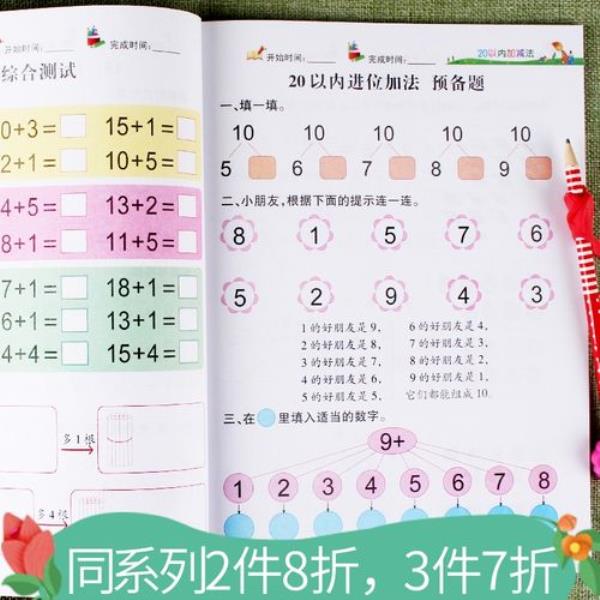 开始时间:____ 完成时间:____
综合测试
0+3= 15+1=
2+1= 10+5=
4+5= 13+2=
8+1= 11+5=
7+1= 18+1=
6+1= 13+1=
4+4= 15+4=
多1根
多4根
开始时间:____ 完成时间:____ 20以内加减法
20以内进位加法 预备题
一、填一填。
10 10 10 10 10
5 6 7 8 9
二、小朋友,根据下面的提示连一连。
8 1 5 7 6
5 2 9 4 3
1的好朋友是9, 6的好朋友是4,
2的好朋友是8, 7的好朋友是3,
3的好朋友是7, 8的好朋友是2,
4的好朋友是6, 9的好朋友是1,
5的好朋友是5, 它们都能组成10.
三、在○里填入适当的数字。
9+
1 2 3 4 5 6 7 8
同系列2件8折，3件7折